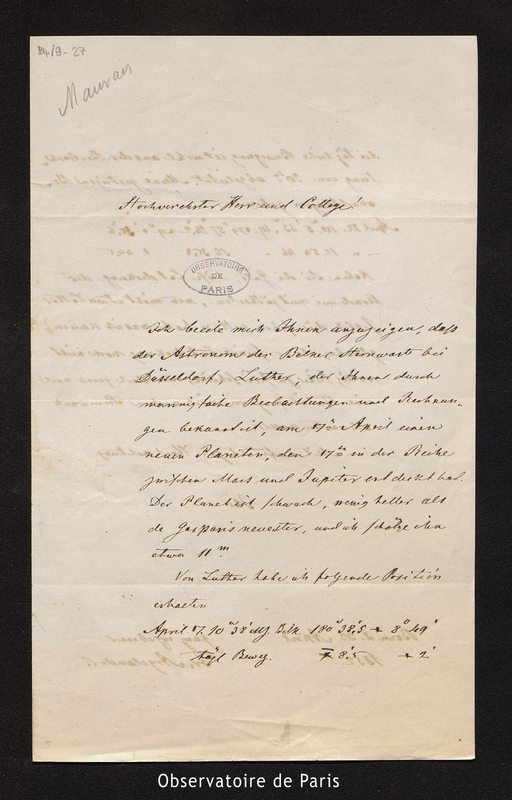 B4/9-27
Mauvais
Hochverehrter Herr und College!
OBSERVATOIRE
DE
PARIS
Ich beeile mich Ihnen anzuzeigen, daß
der Astronom der Bilker Sternwarte bei
Düsseldorf, Luther, der Ihnen durch
mannigfache Beobachtungen und Rechnun-
gen bekannt ist, am 17ten April einen
neuen Planeten, den 17ten in der Reihe
zwischen Mars und Jupiter entdeckt hat.
Der Planet ist schwach, wenig heller als
de Gasparis neuester, und ich schätze ihn
etwa 11m
Von Luther habe ich folgende Position
erhalten
April 17. 10h 38' Mz Bilk 180° 38',5 + 8° 49'
tägl Beweg. 8',5 + 2'
Observatoire de Paris